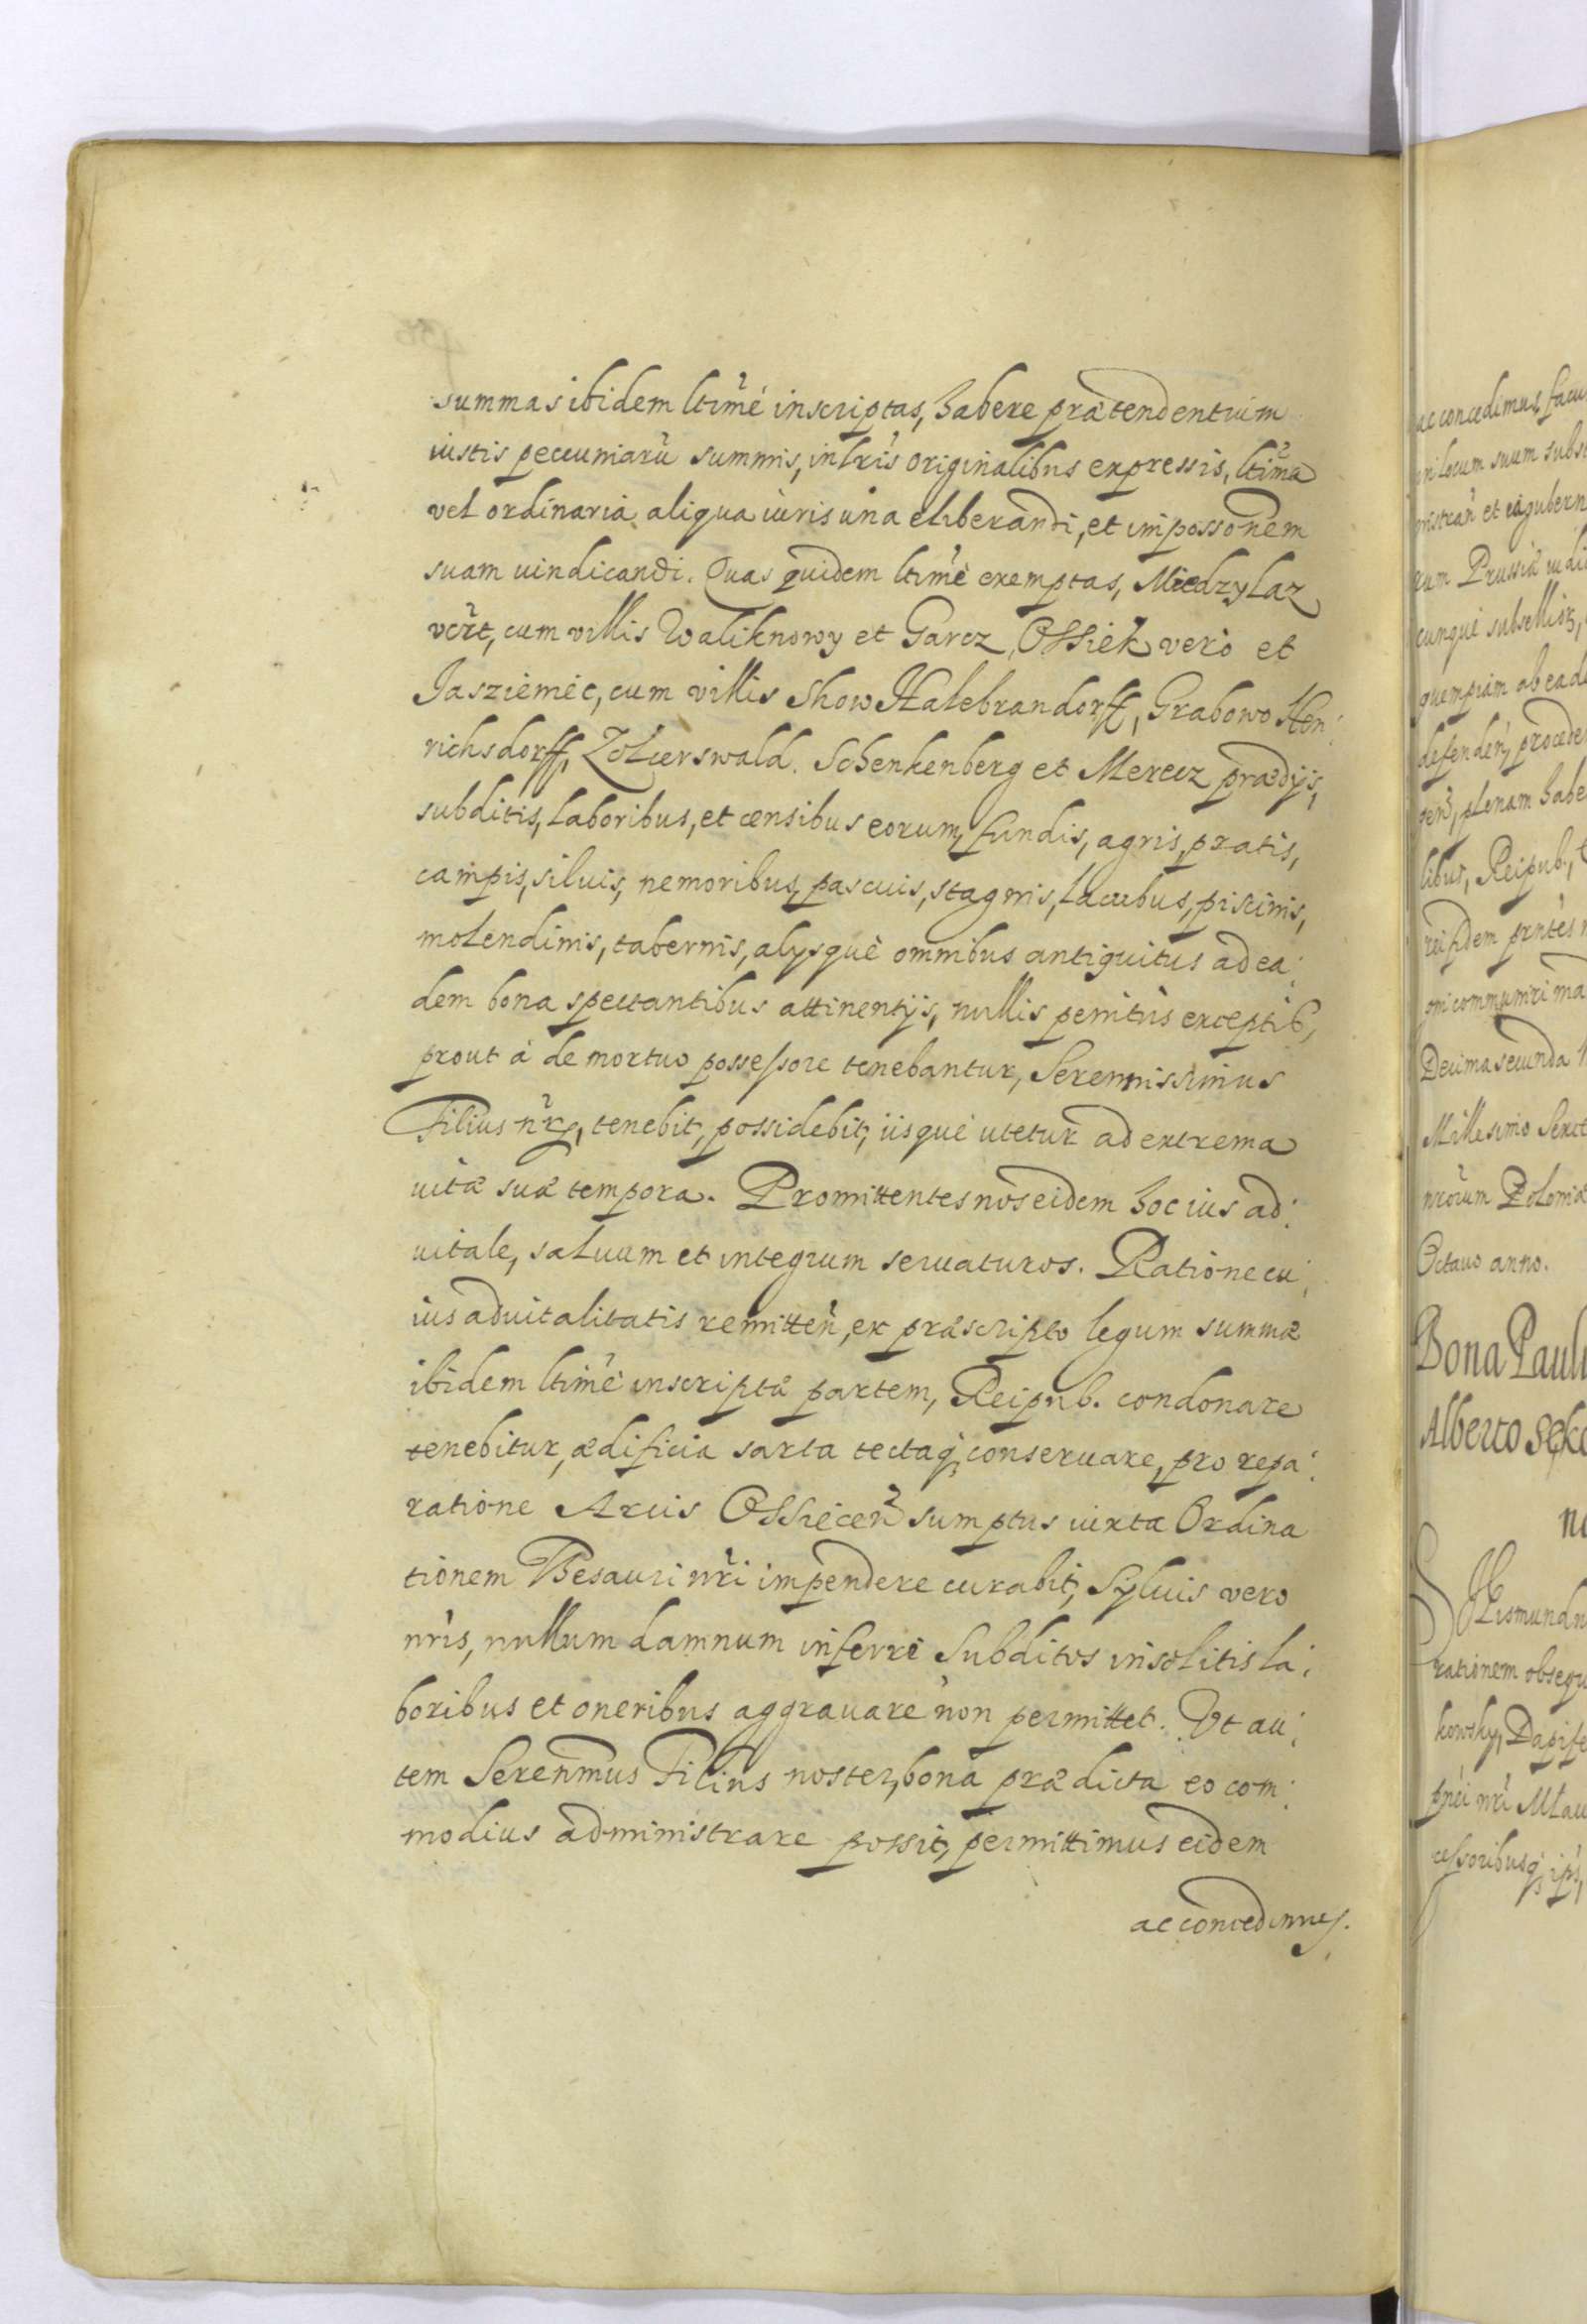 summas ibidem ltīmé inscriptas, habere prætendentium
iustis pecuniarū summis, in lrīs originalibus expressis, ltīma
vel ordinaria aliqua iuris uia eliberandi, et in possonēm
suam uindicandi. Quas quidem ltīmè exemptas, Miedzylaz
verē, cum villis Waliknowy et Garcz, Ossiek verò et
Jasziemie, cum villis Show Halebrandorff, Grabowo Hen:
richsdorff, Zolcerswald. Schenkenberg et Merecz prædijs,
subditis, laboribus, et censibus eorum, fundis, agris, pratis,
campis, siluis, nemoribus, pascuis, stagnis, lacubus, piscinis,
molendinis, tabernis, alysquè omnibus antiquitus ad ea:
dem bona spectantibus attinentijs, nullis penitùs exceptis,
prout à demortuo possessore tenebantur, Serennissimus
Filius nr̄, tenebit, possidebit, iisquè utetur ad extrema
uitæ suæ tempora. Promittentes nos eidem hoc ius ad:
uitale, saluum et integrum seruaturos. Ratione cu:
ius aduitalitatis remitteñ, ex præscripto legum summæ
ibidem ltīmè inscriptæ partem, Reipub. condonare
tenebitur, ædificia sarta tectaq; conseruare, pro repa:
ratione Arcis Ossieceñ sumptus iuxta Ordina
tionem Thesauri nrī impendere curabit, Syluis vero
nrīs, nullum damnum inferri Subditos insolitis la:
boribus et oneribus aggrauare non permittet. Vt au:
tem Serenmūs Filius noster, bona prædicta eo com:
modius administrare possit, permittimus eidem
ac concedimus.
ac concedimus, facu
in locum suum subs
nistrañ et eà gubern
rum Prussiæ iudi
cunquè subsellior,
quempiam ab ead
defendeñ, procede
plenam habe
libus, Reipub.,
rei fidem prñtes
oni communiri ma
Decima secunda
Millesimo Sexc
nrōrum Poloniæ
Octauo anno.
Bona Pauli
Alberto Seko
Sigismundu
rationem obsequ
kowsky, Dapife
nrī
cessoribusq; ips